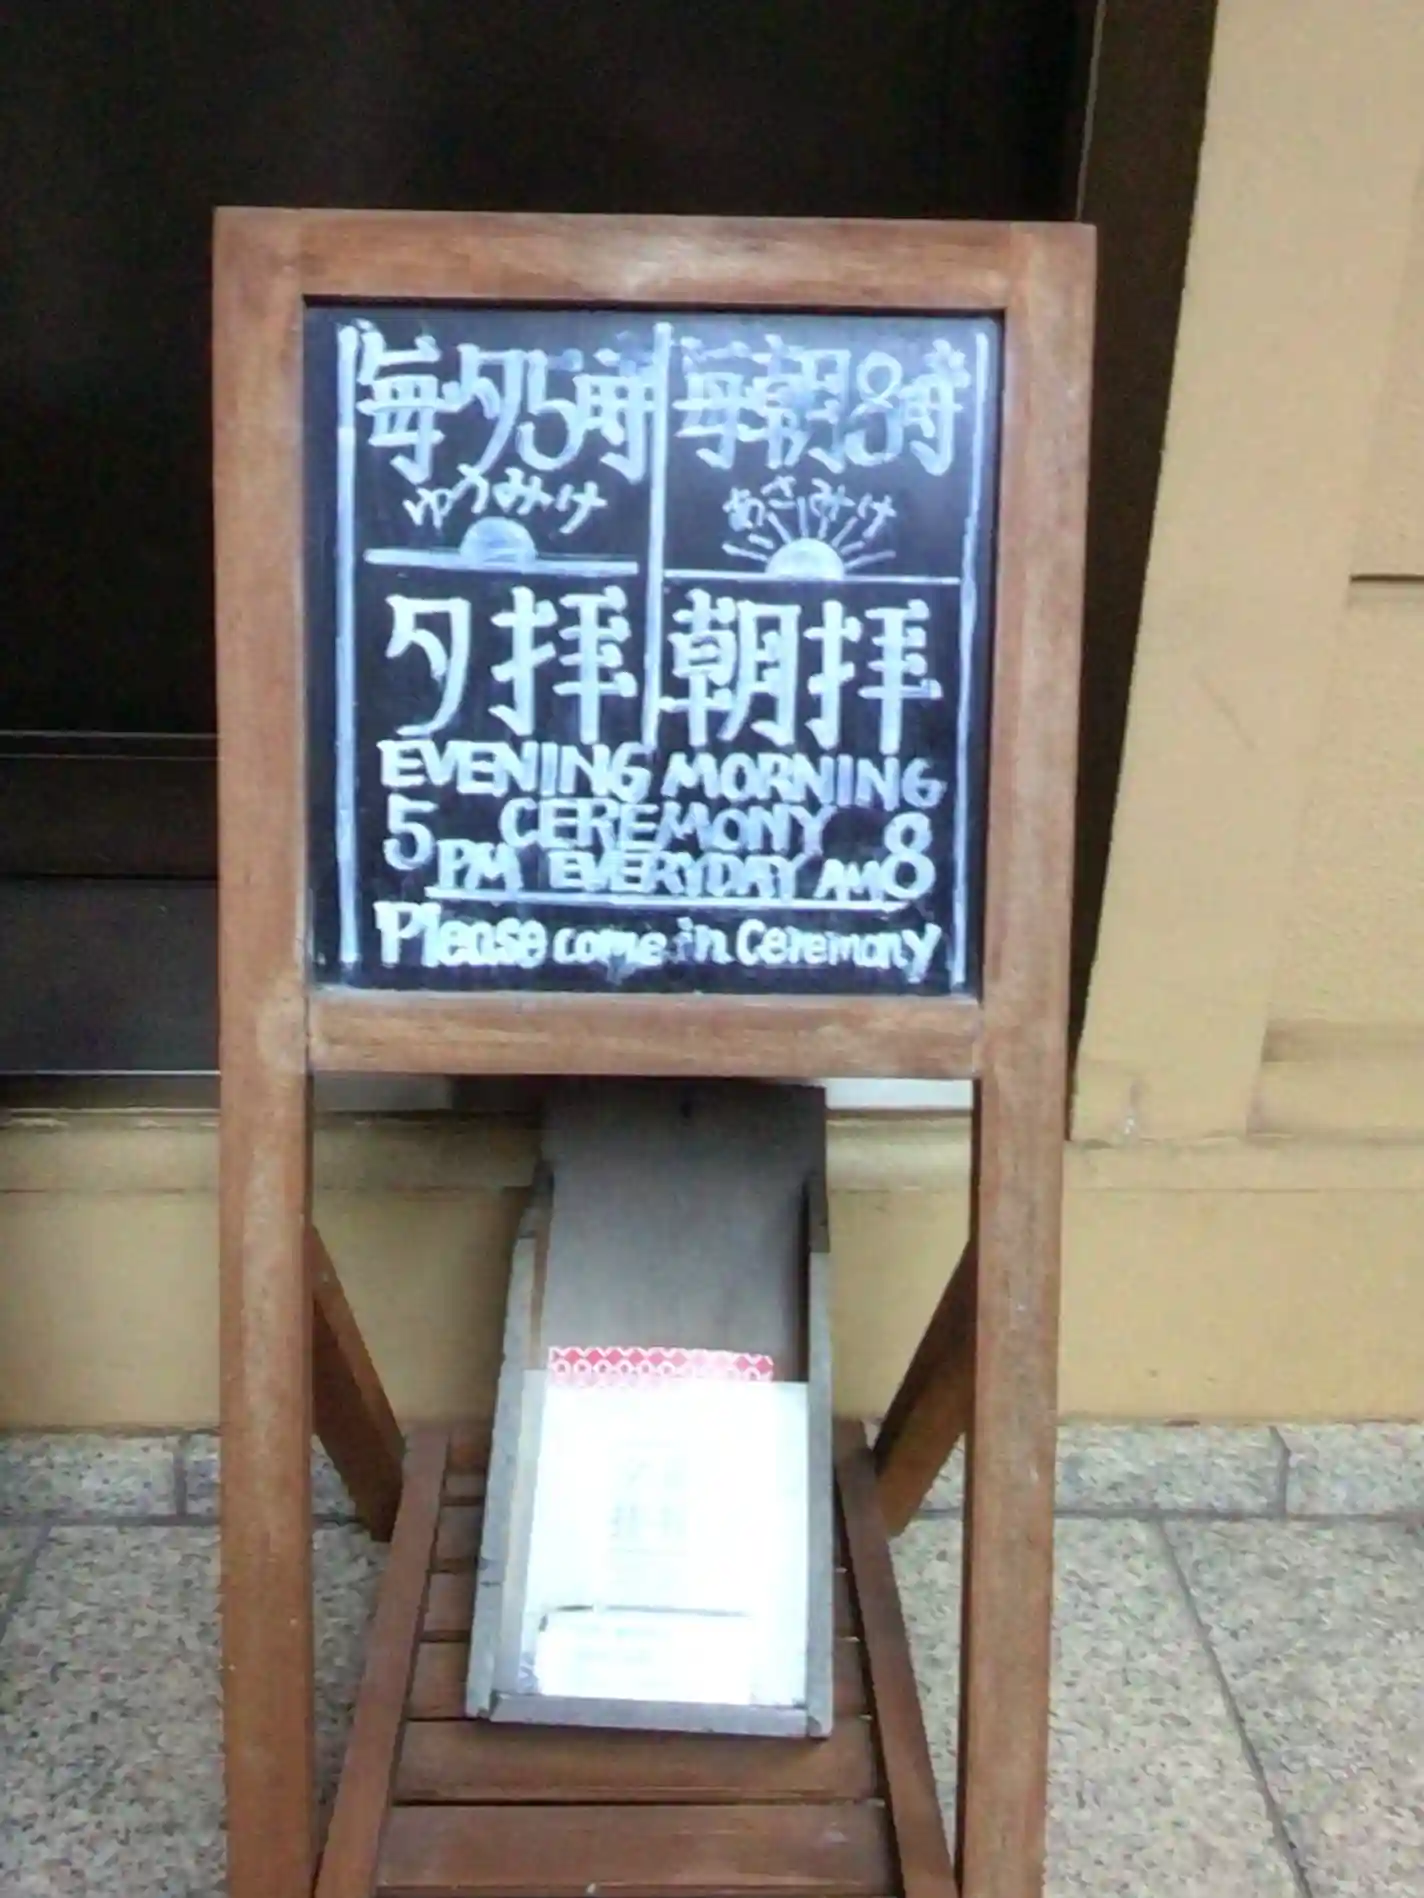 毎夕5時 毎朝8時
ゆうみけ あさみけ
夕拝 朝拝
EVENING MORNING
5 CEREMONY 8
PM EVERYDAY AM
Please come in Ceremony